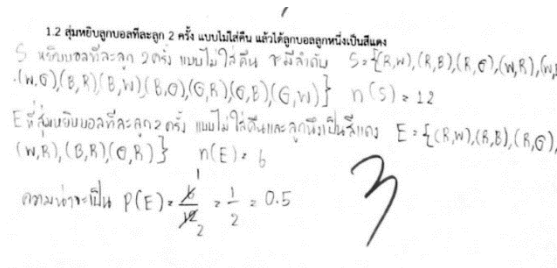 1.2 สุ่มหยิบลูกบอลทีละลูก 2 ครั้ง แบบไม่ใส่คืน แล้วได้ลูกบอลลูกหนึ่งเป็นสีแดง
S หยิบบอลทีละลูก 2 ครั้ง แบบไม่ใส่คืน จะมีลำดับ S={(R,W),(R,B),(R,G),(W,R),(W,
(W,G)(B,R)(B,W)(B,G)(G,R)(G,B)(G,W)} n(S)=12
E ที่สุ่มหยิบบอลทีละลูก 2 ครั้ง แบบไม่ใส่คืนและลูกนึงเป็นสีแดง E={(R,W),(R,B),(R,G),
(W,R),(B,R)(G,R)} n(E)=6
ความน่าจะเป็น P(E)=6/12 1/2 = 1/2 = 0.5
3